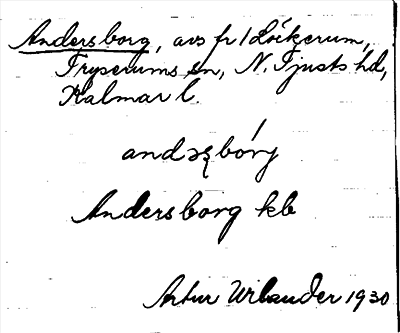 Andersborg, avs fr 1 Löckerum,
Fryserums sn, N. Tjusts hd,
Kalmar l.
andəʂbórj
Andersborg kb
Artur Wilander 1930